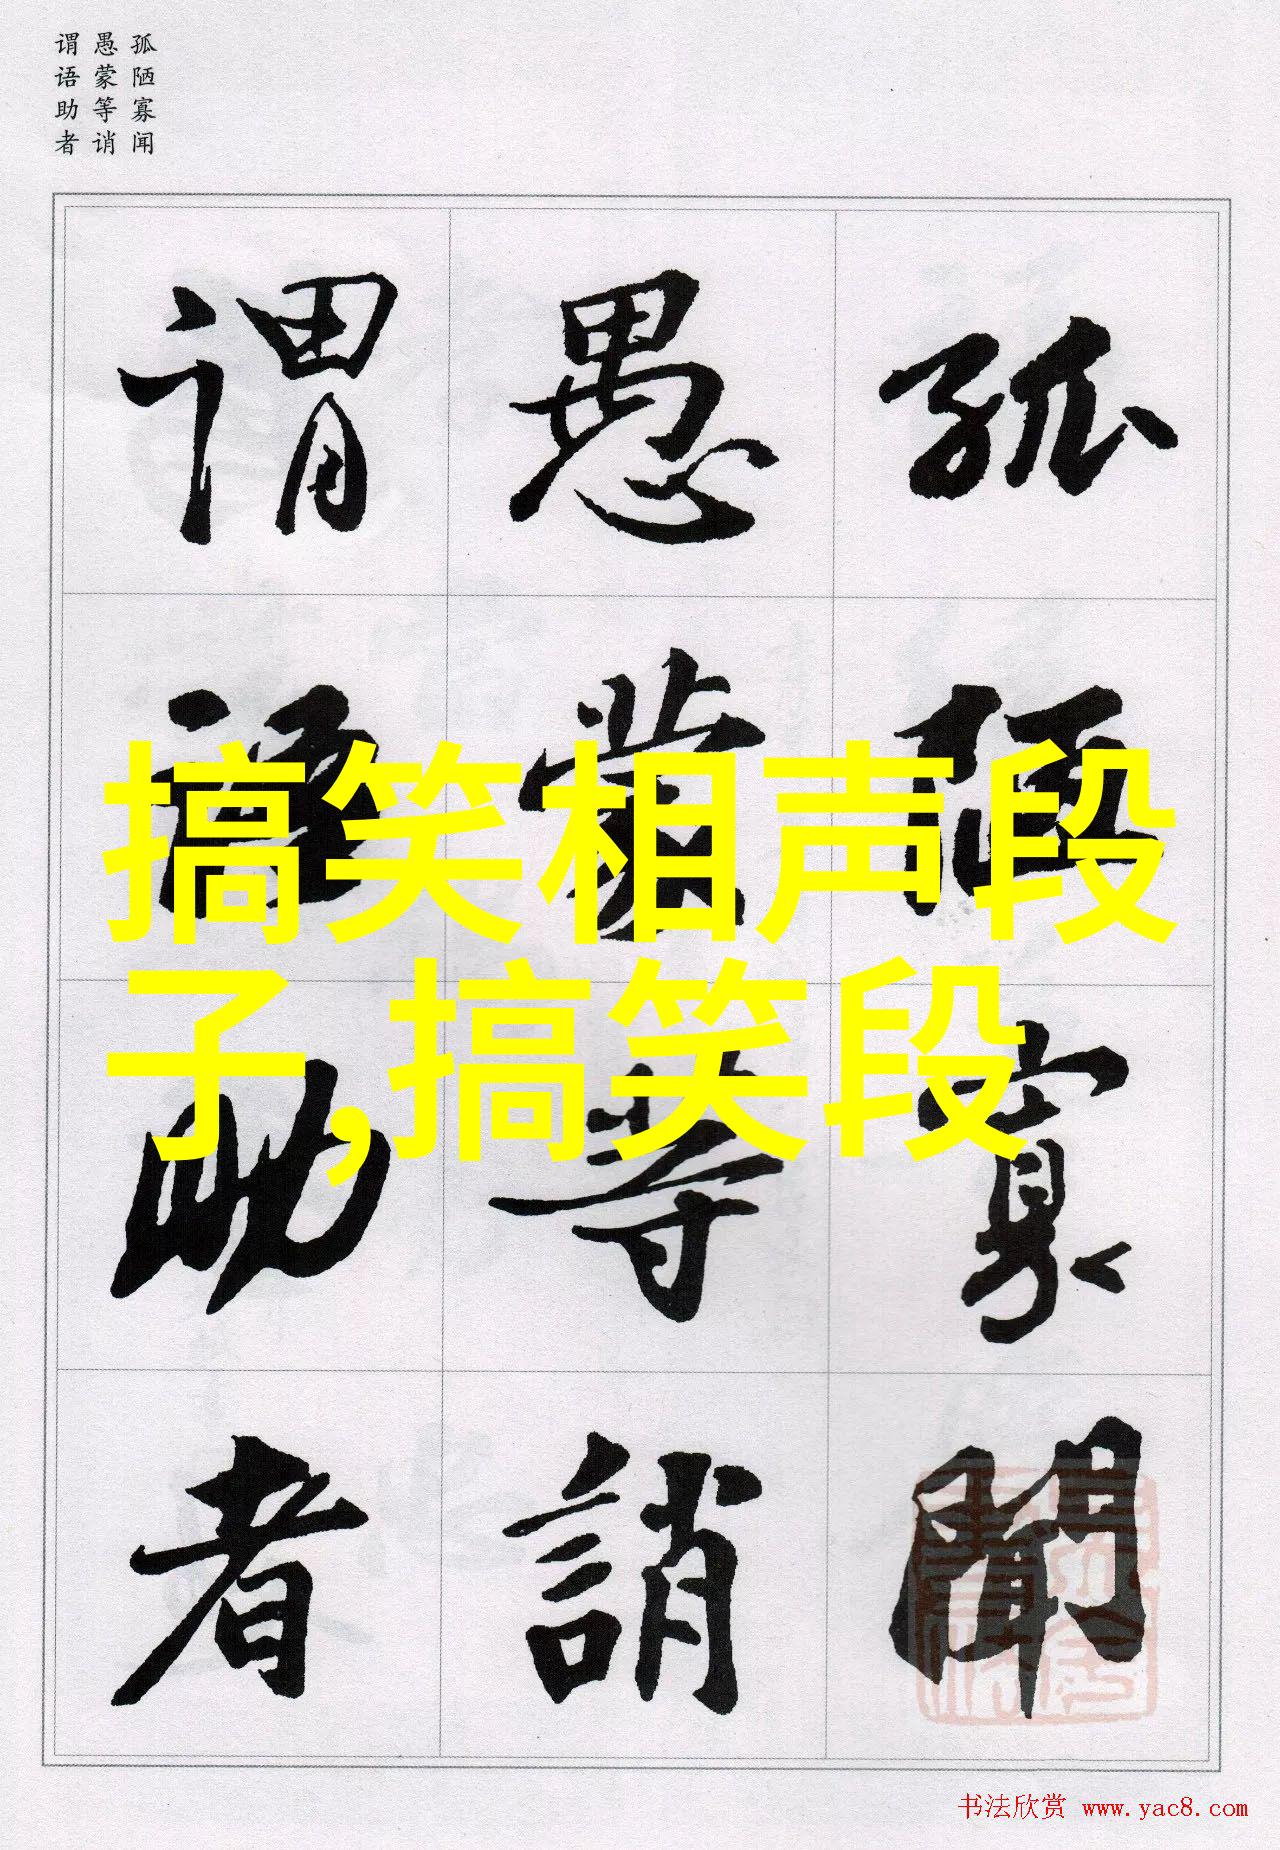 孤陋寡闻
愚蒙等诮
谓语助者
孤陋寡聞
愚蒙等誚
謂語助者
搞笑相声段
子,搞笑段
书法欣赏 www.yac8.com